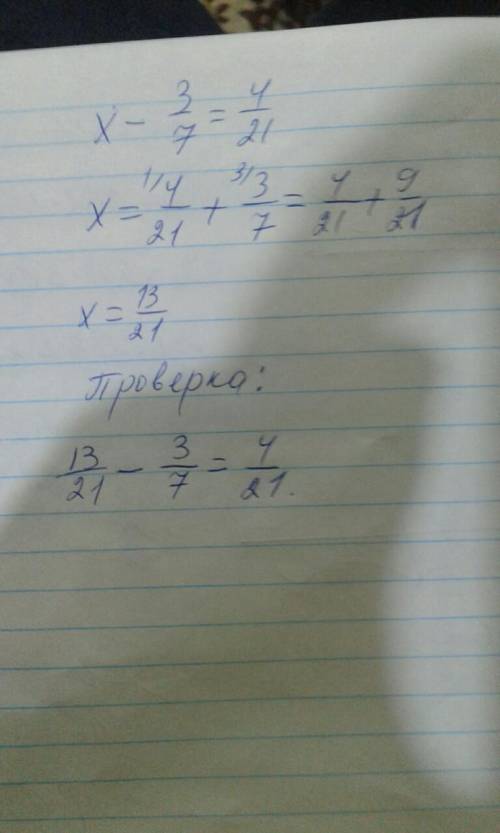 x - 3/7 = 4/21
x = 1/ 4/21 + 3/ 3/7 = 4/21 + 9/21
x = 13/21
Проверка:
13/21 - 3/7 = 4/21.